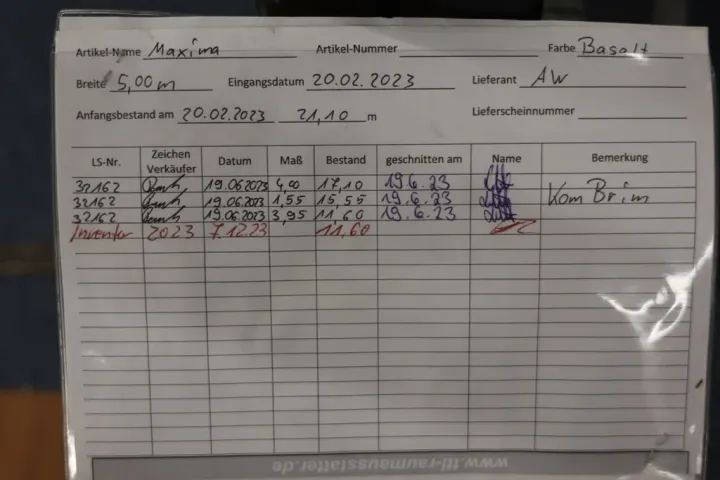 Artikel-Name Maxima Artikel-Nummer Farbe Basalt
Breite 5,00 m Eingangsdatum 20.02.2023 Lieferant AW
Anfangsbestand am 20.02.2023 21,10 m Lieferscheinnummer
LS-Nr. Zeichen Verkäufer Datum Maß Bestand geschnitten am Name Bemerkung
32162 19.06.2023 4,00 17,10 19.6.23
32162 19.06.2023 1,55 15,55 19.6.23 Kom Brim
32162 19.06.2023 3,95 11,60 19.6.23
Inventur 2023 7.12.23 11,60
www.ttl-raumausstatter.de